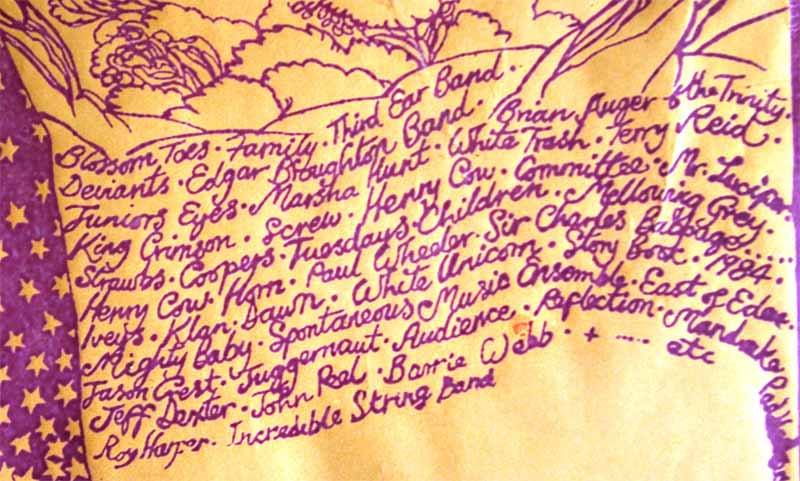 Blossom Toes · Family · Third Ear Band ·
Deviants · Edgar Broughton Band · Brian Auger & the Trinity.
Juniors Eyes · Marsha Hunt · White Trash · Terry Reid ·
King Crimson · Screw · Henry Cow · Committee · Mr. Lucifer.
Strawbs · Coopers · Tuesdays · Children · Mellowing Grey ·
Henry Cow · Horn · Paul Wheeler · Sir Charles Babbage .....
Iveys · Klan · Dawn · White Unicorn · Story Book · 1984 ·
Mighty Baby · Spontaneous Music Ensemble · East of Eden.
Jason Crest · Juggernaut · Audience · Reflection · Mandrake
Jeff Dexter · John Peel · Barrie Webb · + ..... etc
Roy Harper · Incredible String Band